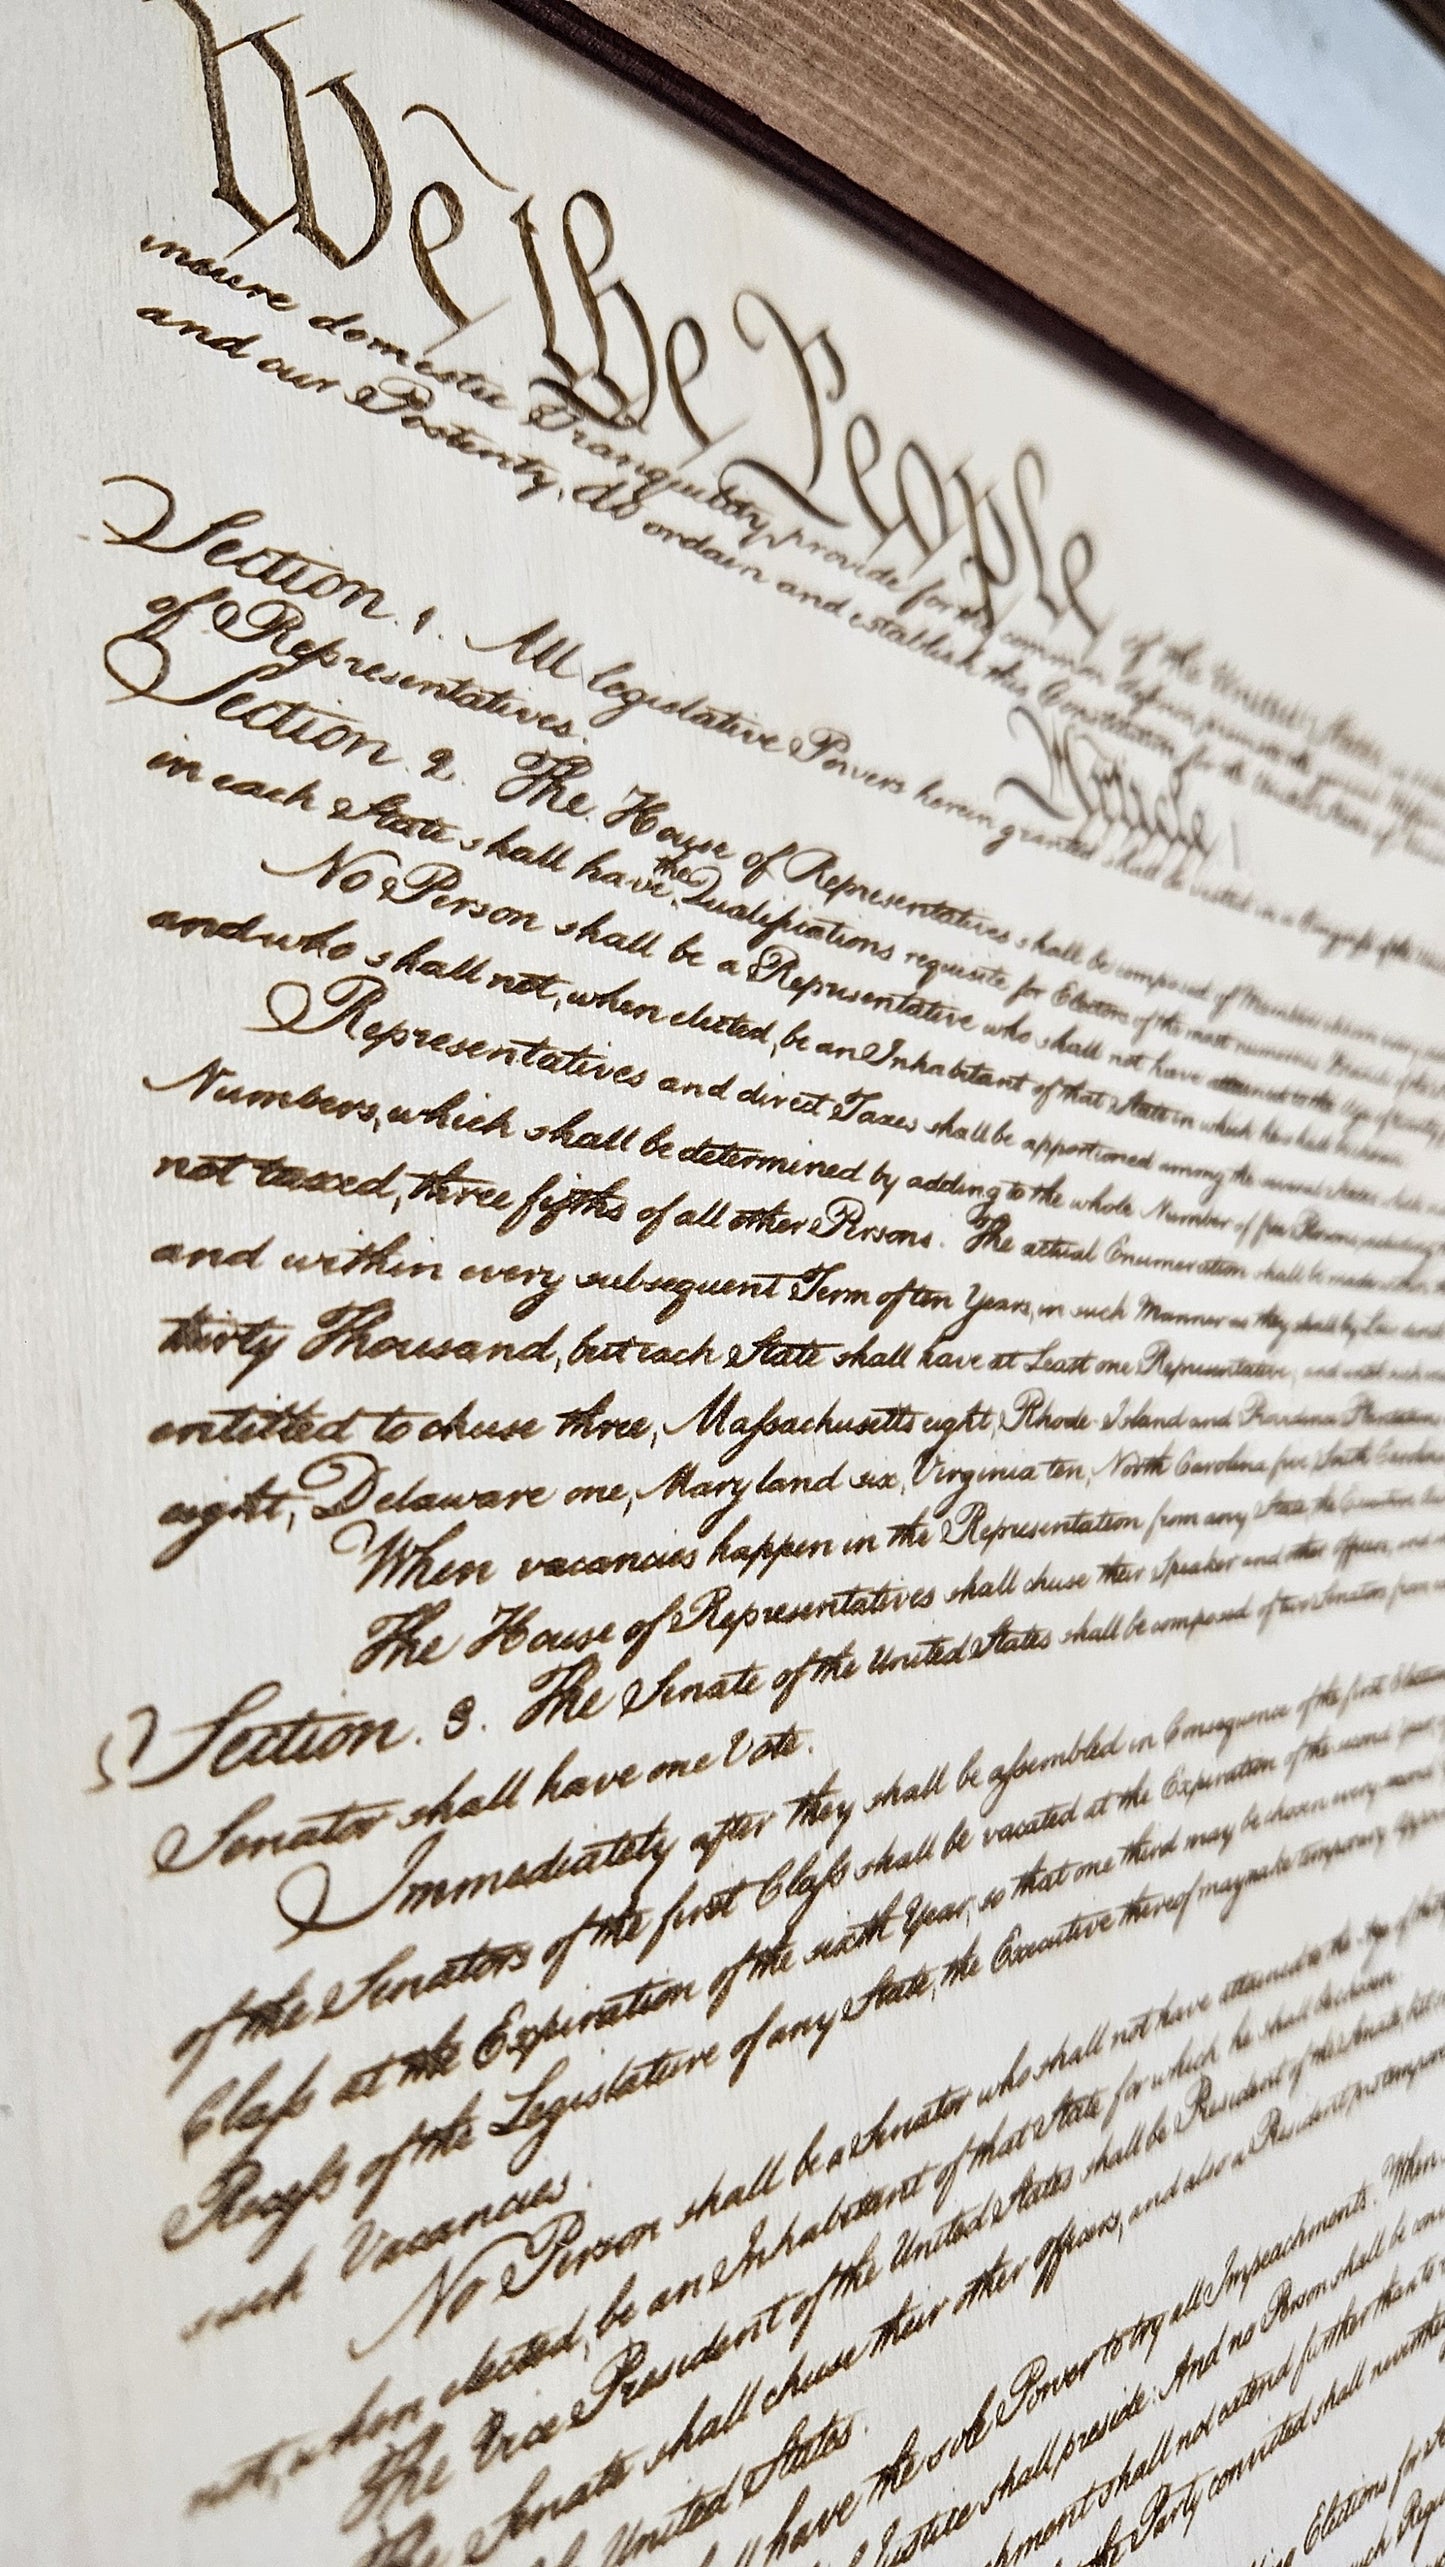 We the People of the United States,
insure domestic Tranquility, provide for the common defence, promote the general
and our Posterity, do ordain and establish this Constitution for the United States of
Article 1
Section. 1. All legislative Powers herein granted shall be vested in a Congreſs of the
of Representatives.
Section. 2. The House of Representatives shall be composed of Members chosen every
in each State shall have the Qualifications requisite for Electors of the most numerous Branch of the
No Person shall be a Representative who shall not have attained to the Age of twenty
and who shall not, when elected, be an Inhabitant of that State in which he shall be chosen.
Representatives and direct Taxes shall be apportioned among the several States which
Numbers, which shall be determined by adding to the whole Number of free Persons, including
not taxed, three fifths of all other Persons. The actual Enumeration shall be made
and within every subsequent Term of ten Years, in such Manner as they shall by Law
thirty Thousand, but each State shall have at Least one Representative; and until such
entitled to chuse three, Maſsachusetts eight, Rhode-Island and Providence Plantations
eight, Delaware one, Maryland six, Virginia ten, North Carolina five, South Carolina
When vacancies happen in the Representation from any State, the Executive
The House of Representatives shall chuse their Speaker and other Officers, and
Section. 3. The Senate of the United States shall be composed of two Senators from
Senator shall have one Vote.
Immediately after they shall be aſsembled in Consequence of the first Election
of the Senators of the first Claſs shall be vacated at the Expiration of the second Year,
Claſs at the Expiration of the sixth Year, so that one third may be chosen every second
Receſs of the Legislature of any State, the Executive thereof may make temporary
such Vacancies.
No Person shall be a Senator who shall not have attained to the Age of thirty
not, when elected, be an Inhabitant of that State for which he shall be chosen.
The Vice President of the United States shall be President of the Senate, but
The Senate shall chuse their other Officers, and also a President pro tempore
United States.
have the sole Power to try all Impeachments. When
Justice shall preside: And no Person shall be
shall not extend further than to
Party convicted shall
Elections for